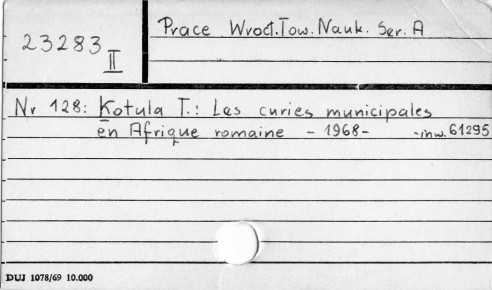 23283 II
Prace Wrocł. Tow. Nauk. Ser. A
Nr 128: Kotula T.: Les curies municipales
en Afrique romaine - 1968- -inw. 61295
DUJ 1078/69 10.000